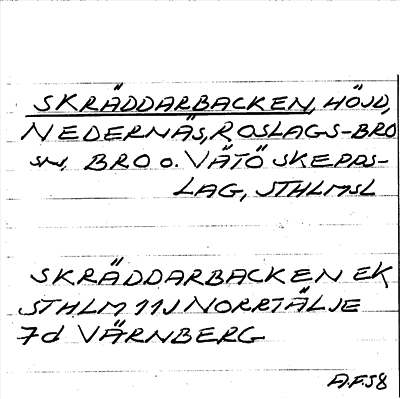 SKRÄDDARBACKEN, HÖJD,
NEDERNÄS, ROSLAGS-BRO
sn. BRO o. VÄTÖ SKEPPS-
LAG, STHLMSL
SKRÄDDARBACKEN EK
STHLM 11J NORRTÄLJE
7d VÄRNBERG
A.F.58